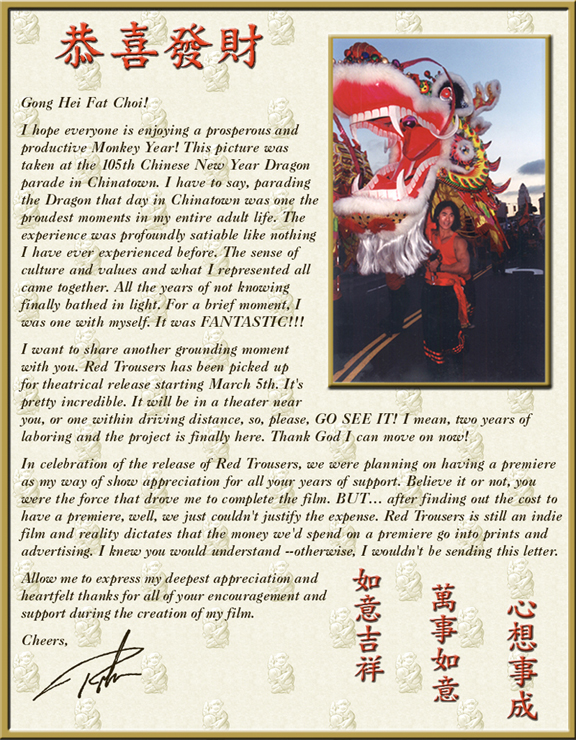 恭喜發財
Gong Hei Fat Choi!
I hope everyone is enjoying a prosperous and
productive Monkey Year! This picture was
taken at the 105th Chinese New Year Dragon
parade in Chinatown. I have to say, parading
the Dragon that day in Chinatown was one the
proudest moments in my entire adult life. The
experience was profoundly satiable like nothing
I have ever experienced before. The sense of
culture and values and what I represented all
came together. All the years of not knowing
finally bathed in light. For a brief moment, I
was one with myself. It was FANTASTIC!!!
I want to share another grounding moment
with you. Red Trousers has been picked up
for theatrical release starting March 5th. It's
pretty incredible. It will be in a theater near
you, or one within driving distance, so, please, GO SEE IT! I mean, two years of
laboring and the project is finally here. Thank God I can move on now!
In celebration of the release of Red Trousers, we were planning on having a premiere
as my way of show appreciation for all your years of support. Believe it or not, you
were the force that drove me to complete the film. BUT... after finding out the cost to
have a premiere, well, we just couldn't justify the expense. Red Trousers is still an indie
film and reality dictates that the money we'd spend on a premiere go into prints and
advertising. I knew you would understand --otherwise, I wouldn't be sending this letter.
Allow me to express my deepest appreciation and
heartfelt thanks for all of your encouragement and
support during the creation of my film.
Cheers,
如意吉祥
萬事如意
心想事成